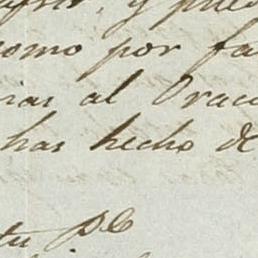 y pues
como por fa
ias al Orac
has hecho de
tu p.e